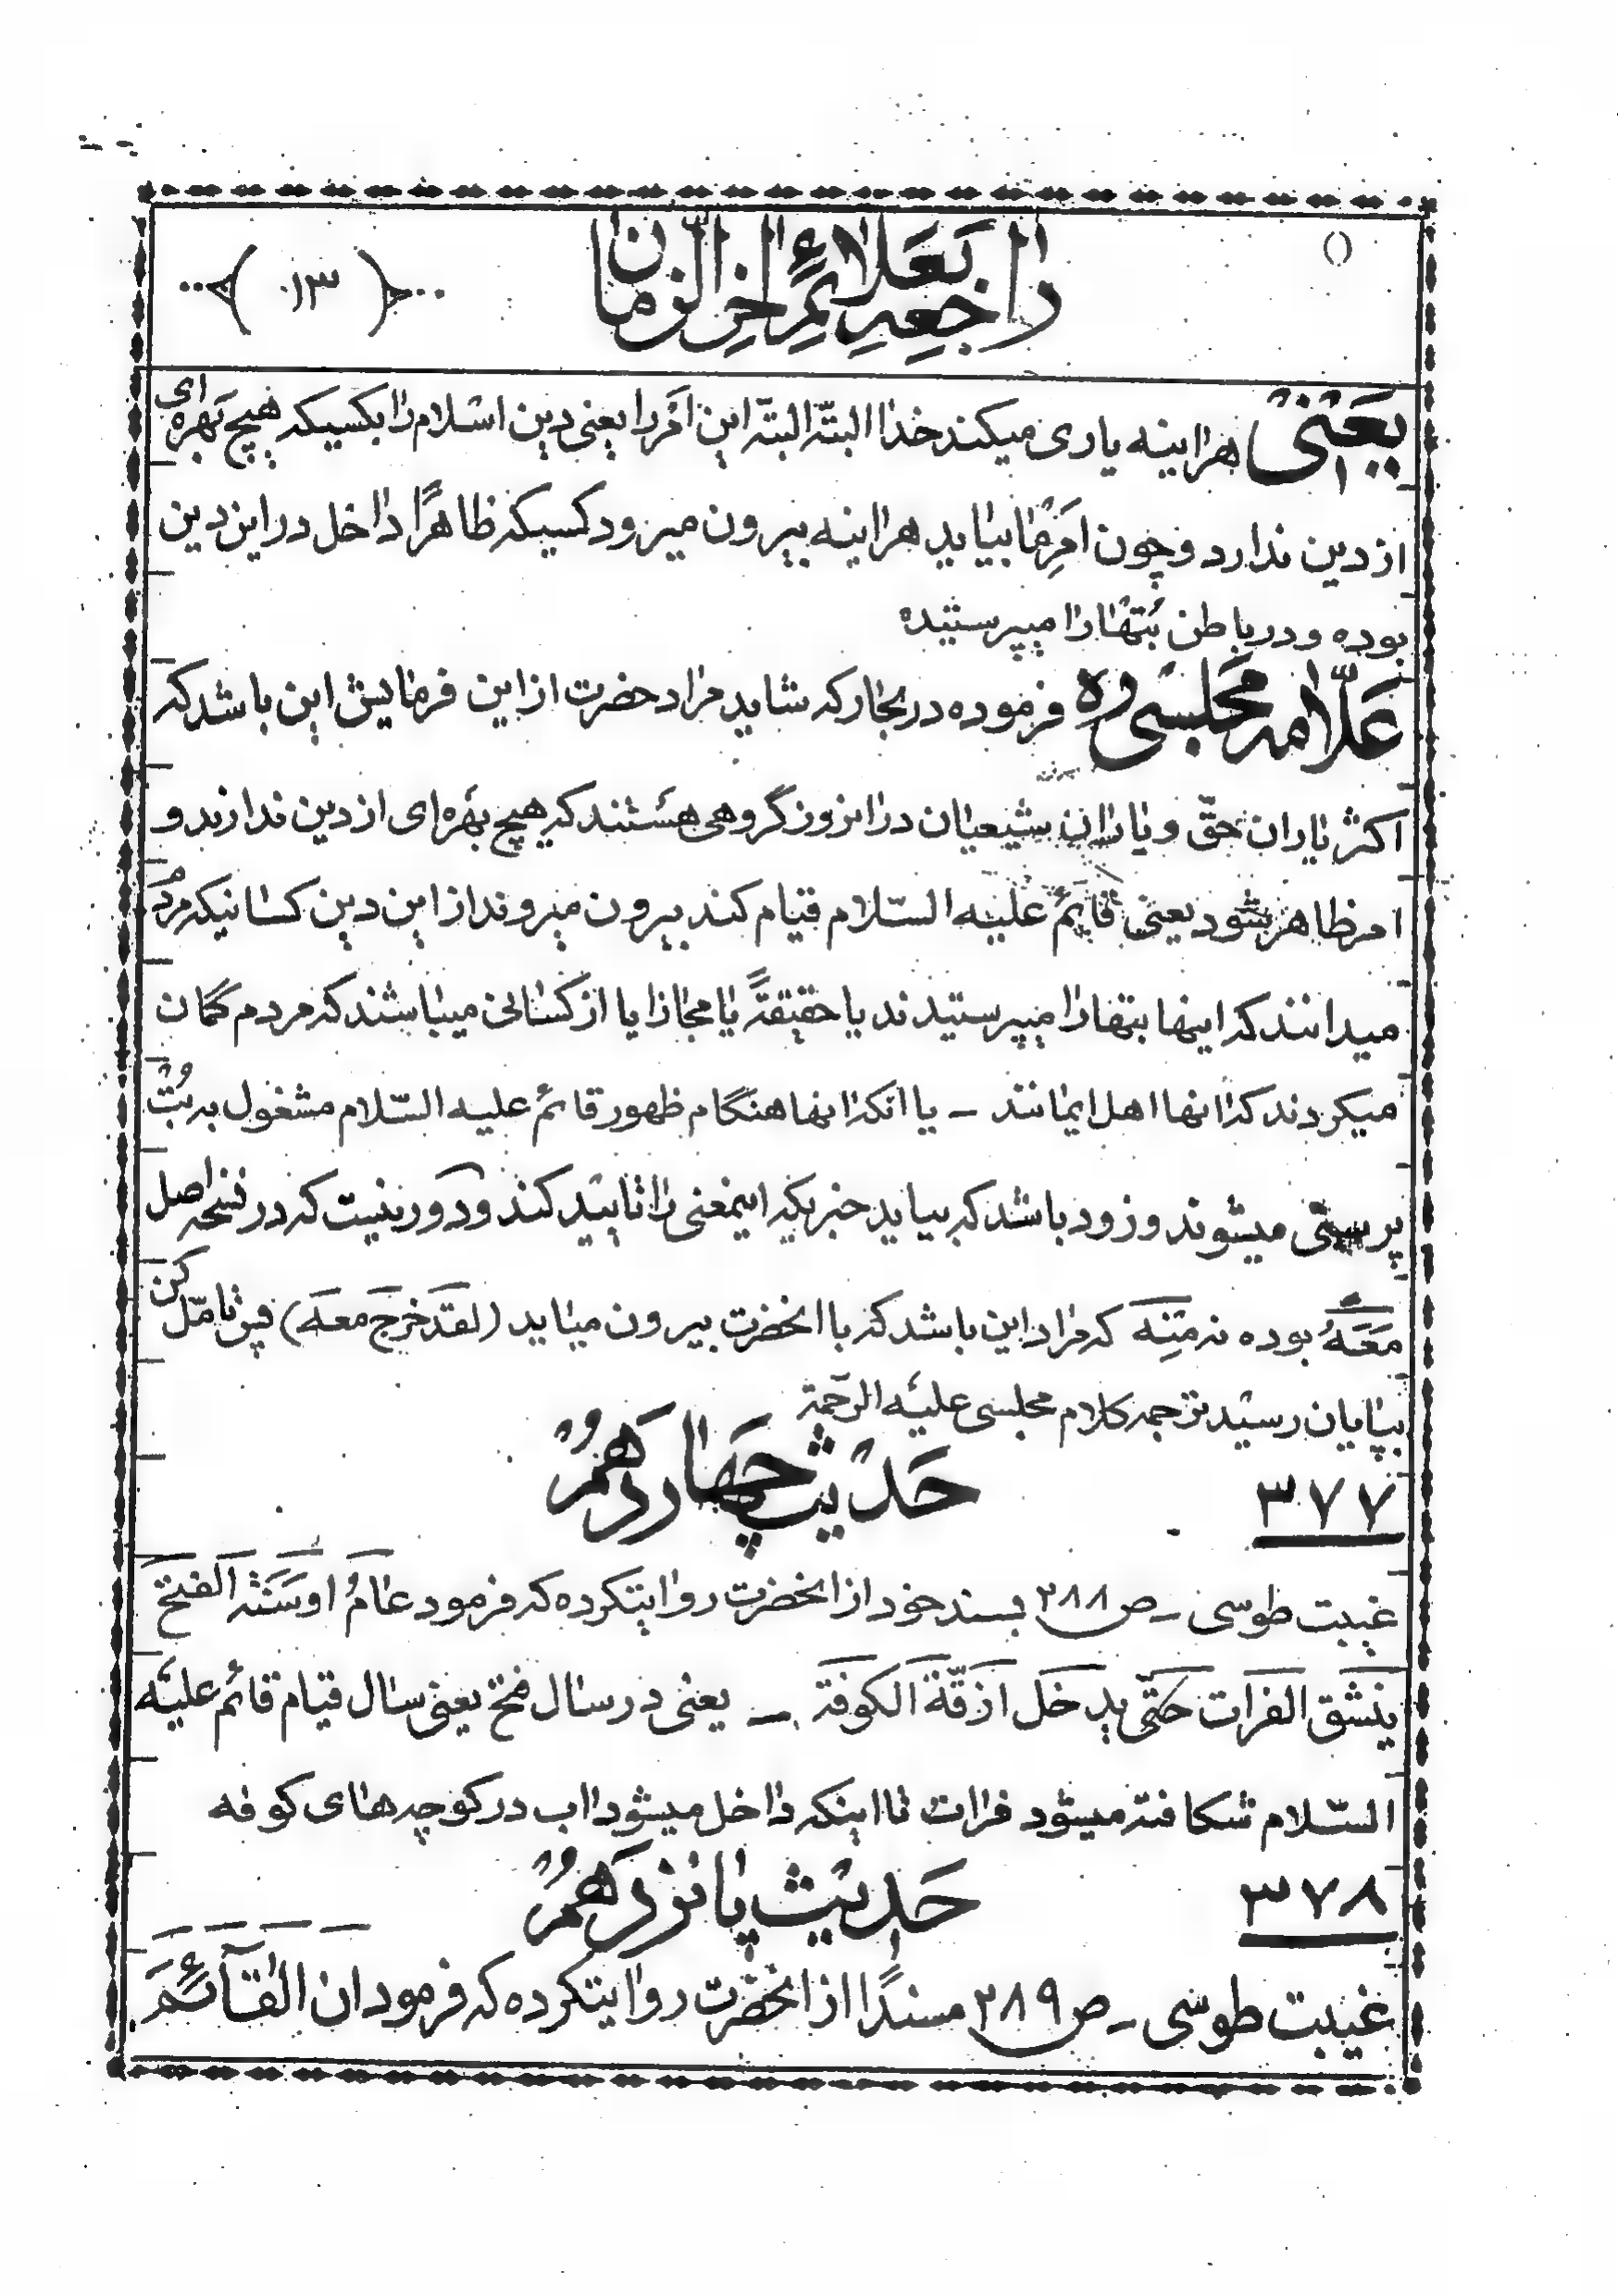 راجعه بعلائم اخر الزمان
(۱۳)
یعنی هراینه یاری میکند خدا البتّه البتّه این امر را یعنی دین اسلام را بکسیکه هیچ بهره ای
از دین ندارد و چون امر ما بیاید هراینه بیرون میرود کسیکه ظاهرًا داخل در این دین
بوده و در باطن بُتها را میپرستیده
علّامه مجلسی ره فرموده در بحار که شاید مراد حضرت از این فرمایش این باشد که
اکثر یاران حقّ و یاران شیعیان در انروز گروهی هستند که هیچ بهره ای از دین ندارند و
امر ظاهر شود یعنی قائم علیه السّلام قیام کند بیرون میروند از این دین کسانیکه مردم
میدانند که اینها بتها را میپرستیدند یا حقیقةً یا مجازا یا از کسانی میباشند که مردم گمان
میکردند که انها اهل ایمانند – یا انکه انها هنگام ظهور قائم علیه السّلام مشغول به بُت
پرستی میشوند و زود باشد که بیاید خبریکه اینمعنی را تایید کند و دور نیست که در نسخه اصل
مَعَهُ بوده نه مِنه که مراد این باشد که با انحضرت بیرون میاید (لقد خرج معه) پس تامّل کن
بپایان رسید ترجمه کلام مجلسی علیه الرّحمة
۳۷۷ حدیث چهاردهم
غیبت طوسی – ص ۲۸۸ بسند خود از انحضرت روایتکرده که فرمود عامُ او سَنَة الفتح
ینشق الفرات حتّی یدخل ازقّة الکوفة – یعنی در سال فتح یعنی سال قیام قائم علیه
السّلام شکافته میشود فرات تا اینکه داخل میشود اب در کوچه های کوفه
۳۷۸ حدیث پانزدهم
غیبت طوسی – ص ۲۸۹ مسندًا از انحضرت روایتکرده که فرمود ان القآئم